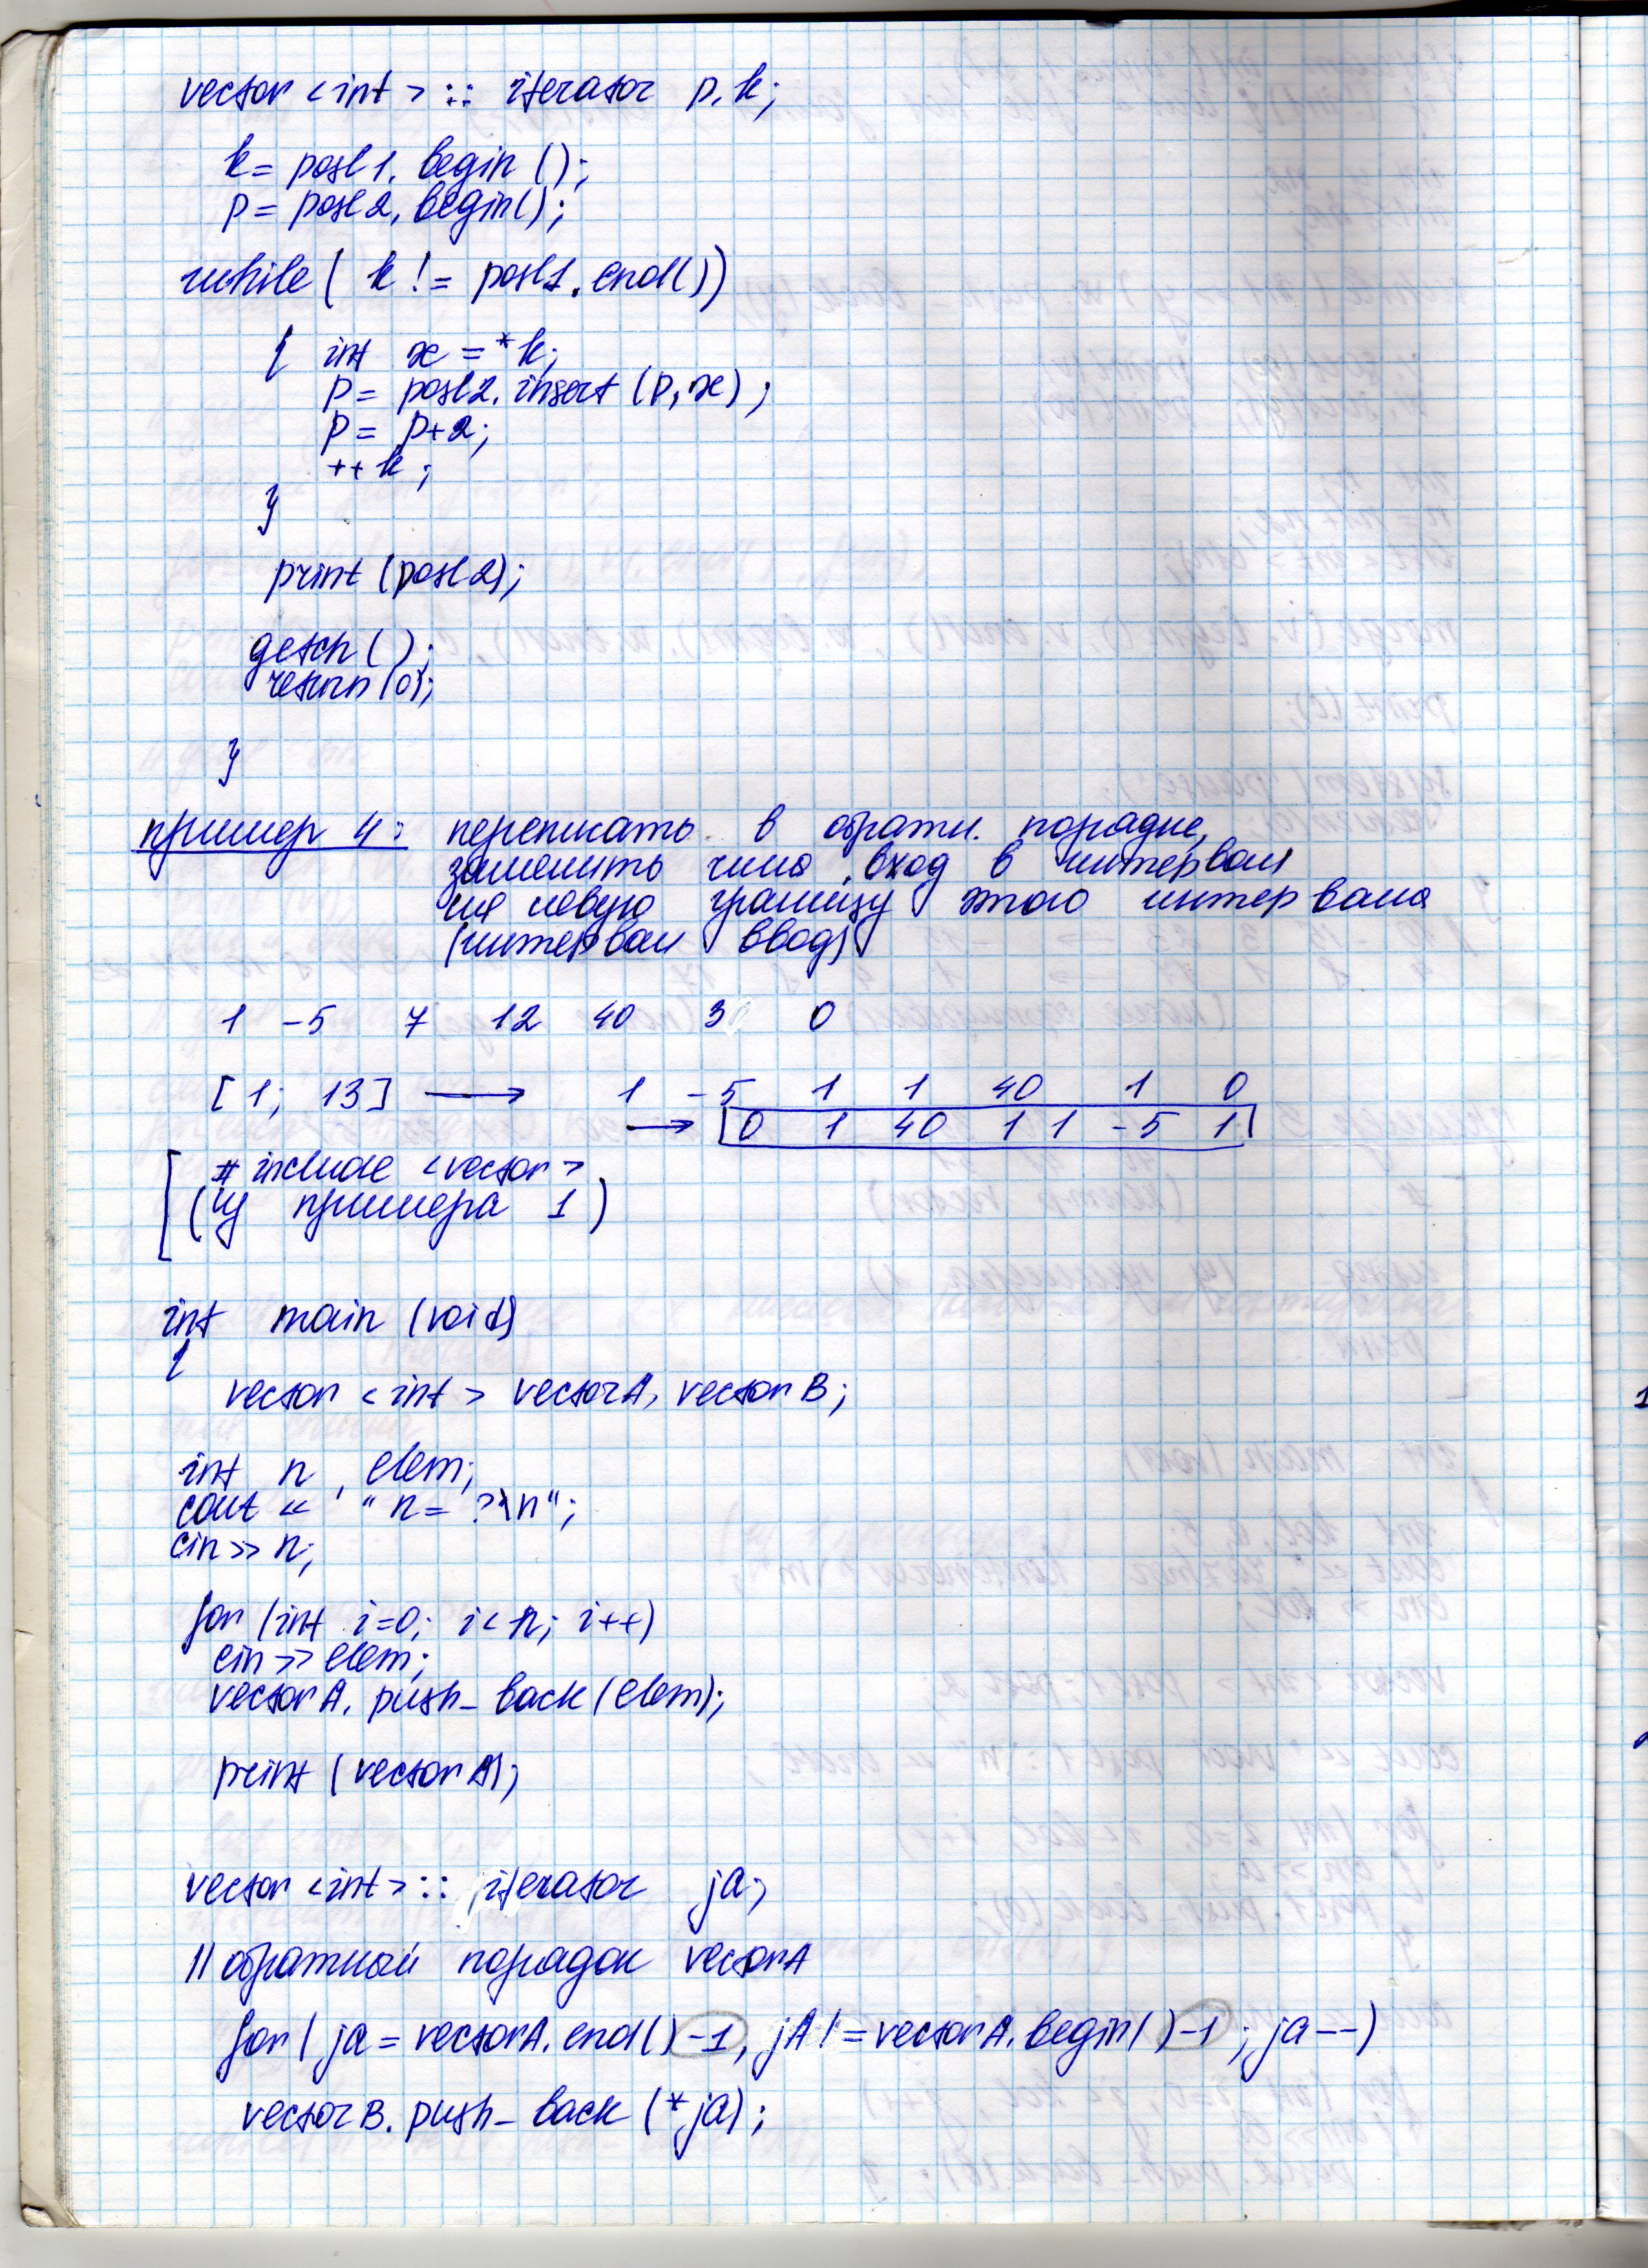 vector <int> :: iterator p, k;
k = posl1. begin ();
p = posl2. begin();
while ( k != posl1. end())
{ int x = *k;
p = posl2. insert (p, x);
p = p+2;
++k;
}
print (posl2);
getch ();
return (0);
}
пример 4: переписать в обратн. порядке,
заменить числа, вход в интервал
на левую границу этого интервала
(интервал ввод)
1 -5 7 12 40 3 0
[1; 13] → 1 -5 1 1 40 1 0
→ 0 1 40 1 1 -5 1
# include <vector>
(из примера 1)
int main (void)
{
vector <int> vectorA, vectorB;
int n, elem;
cout << "n = ?\n";
cin >> n;
for (int i=0; i<n; i++)
cin >> elem;
vectorA. push_back (elem);
print (vectorA);
vector <int> :: iterator ja;
// обратный порядок vectorA
for ( ja = vectorA. end() -1, jA != vectorA. begin() -1; ja--)
vectorB. push_back (*ja);